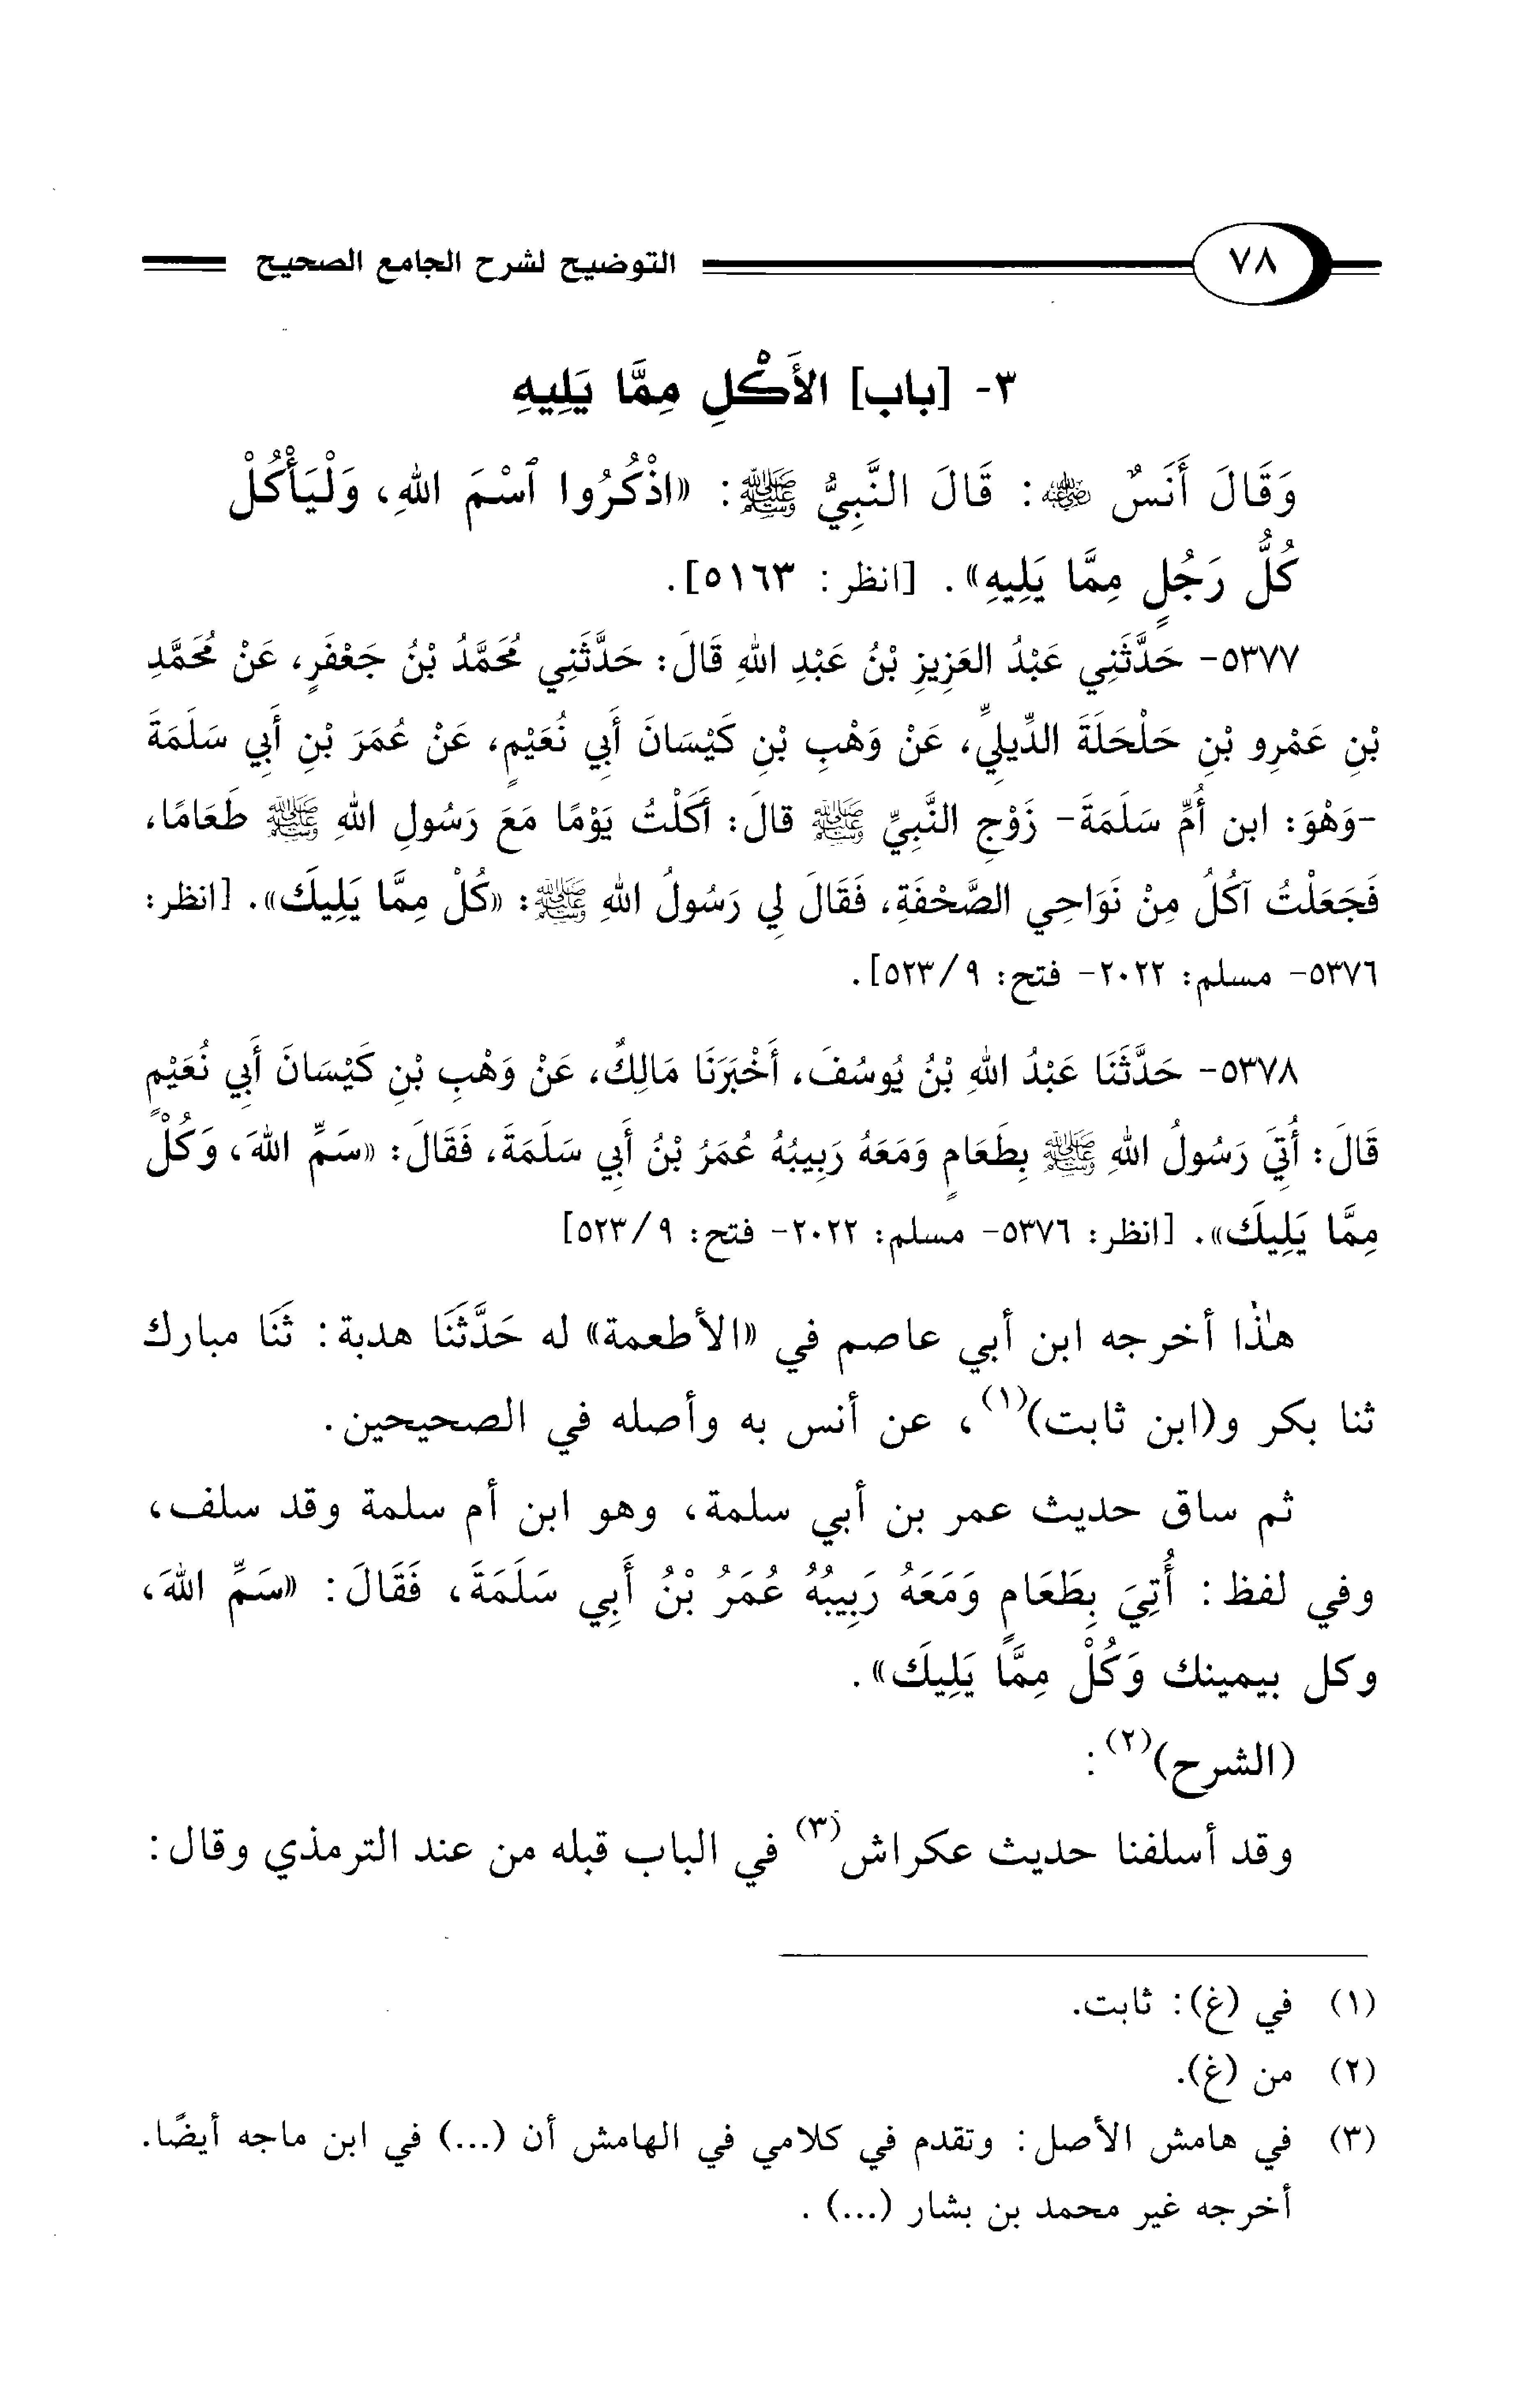 ٧٨ التوضيح لشرح الجامع الصحيح
٣- [باب] الأَكْلِ مِمَّا يَلِيهِ
وَقَالَ أَنَسٌ رضي الله عنه: قَالَ النَّبِيُّ ﷺ: «اذْكُرُوا ٱسْمَ اللهِ، وَلْيَأْكُلْ
كُلُّ رَجُلٍ مِمَّا يَلِيهِ». [انظر: ٥١٦٣].
٥٣٧٧- حَدَّثَنِي عَبْدُ العَزِيزِ بْنُ عَبْدِ اللهِ قَالَ: حَدَّثَنِي مُحَمَّدُ بْنُ جَعْفَرٍ، عَنْ مُحَمَّدِ
بْنِ عَمْرِو بْنِ حَلْحَلَةَ الدِّيلِيِّ، عَنْ وَهْبِ بْنِ كَيْسَانَ أَبِي نُعَيْمٍ، عَنْ عُمَرَ بْنِ أَبِي سَلَمَةَ
-وَهْوَ: ابن أُمِّ سَلَمَةَ- زَوْجِ النَّبِيِّ ﷺ قالَ: أَكَلْتُ يَوْمًا مَعَ رَسُولِ اللهِ ﷺ طَعَامًا،
فَجَعَلْتُ آكُلُ مِنْ نَوَاحِي الصَّحْفَةِ، فَقَالَ لِي رَسُولُ اللهِ ﷺ: «كُلْ مِمَّا يَلِيكَ». [انظر:
٥٣٧٦- مسلم: ٢٠٢٢- فتح: ٩/ ٥٢٣].
٥٣٧٨- حَدَّثَنَا عَبْدُ اللهِ بْنُ يُوسُفَ، أَخْبَرَنَا مَالِكٌ، عَنْ وَهْبِ بْنِ كَيْسَانَ أَبِي نُعَيْمٍ
قَالَ: أُتِيَ رَسُولُ اللهِ ﷺ بِطَعَامٍ وَمَعَهُ رَبِيبُهُ عُمَرُ بْنُ أَبِي سَلَمَةَ، فَقَالَ: «سَمِّ اللهَ، وَكُلْ
مِمَّا يَلِيكَ». [انظر: ٥٣٧٦- مسلم: ٢٠٢٢- فتح: ٩/ ٥٢٣]
هذا أخرجه ابن أبي عاصم في «الأطعمة» له حَدَّثَنَا هدبة: ثَنَا مبارك
ثنا بكر و(ابن ثابت)(١)، عن أنس به وأصله في الصحيحين.
ثم ساق حديث عمر بن أبي سلمة، وهو ابن أم سلمة وقد سلف،
وفي لفظ: أُتِيَ بِطَعَامٍ وَمَعَهُ رَبِيبُهُ عُمَرُ بْنُ أَبِي سَلَمَةَ، فَقَالَ: «سَمِّ اللهَ،
وكل بيمينك وَكُلْ مِمَّا يَلِيكَ».
(الشرح)(٢):
وقد أسلفنا حديث عكراش(٣) في الباب قبله من عند الترمذي وقال:
(١) في (غ): ثابت.
(٢) من (غ).
(٣) في هامش الأصل: وتقدم في كلامي في الهامش أن (...) في ابن ماجه أيضًا.
أخرجه غير محمد بن بشار (...).